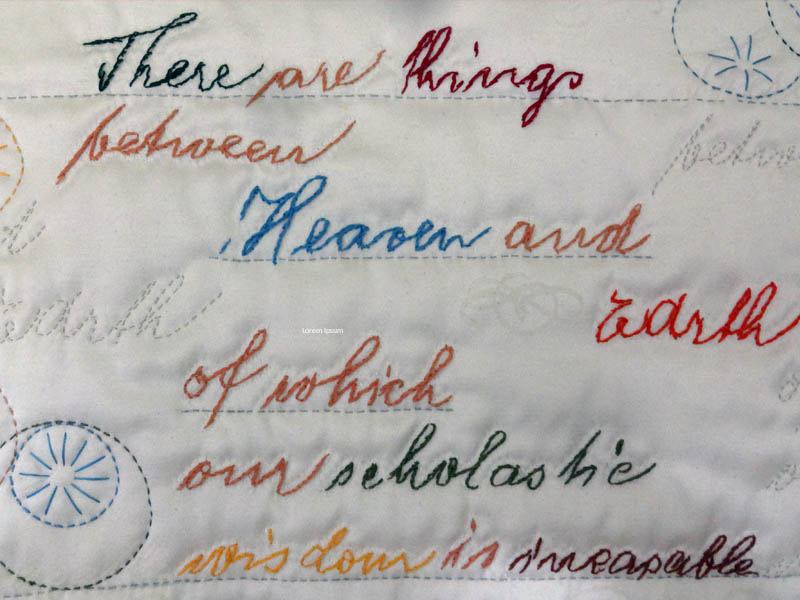 There are things
between
Heaven and
Earth
Earth
Lorem Ipsum
of which
our scholastic
wisdom is incapable